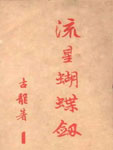 流星蝴蝶劍
古龍著